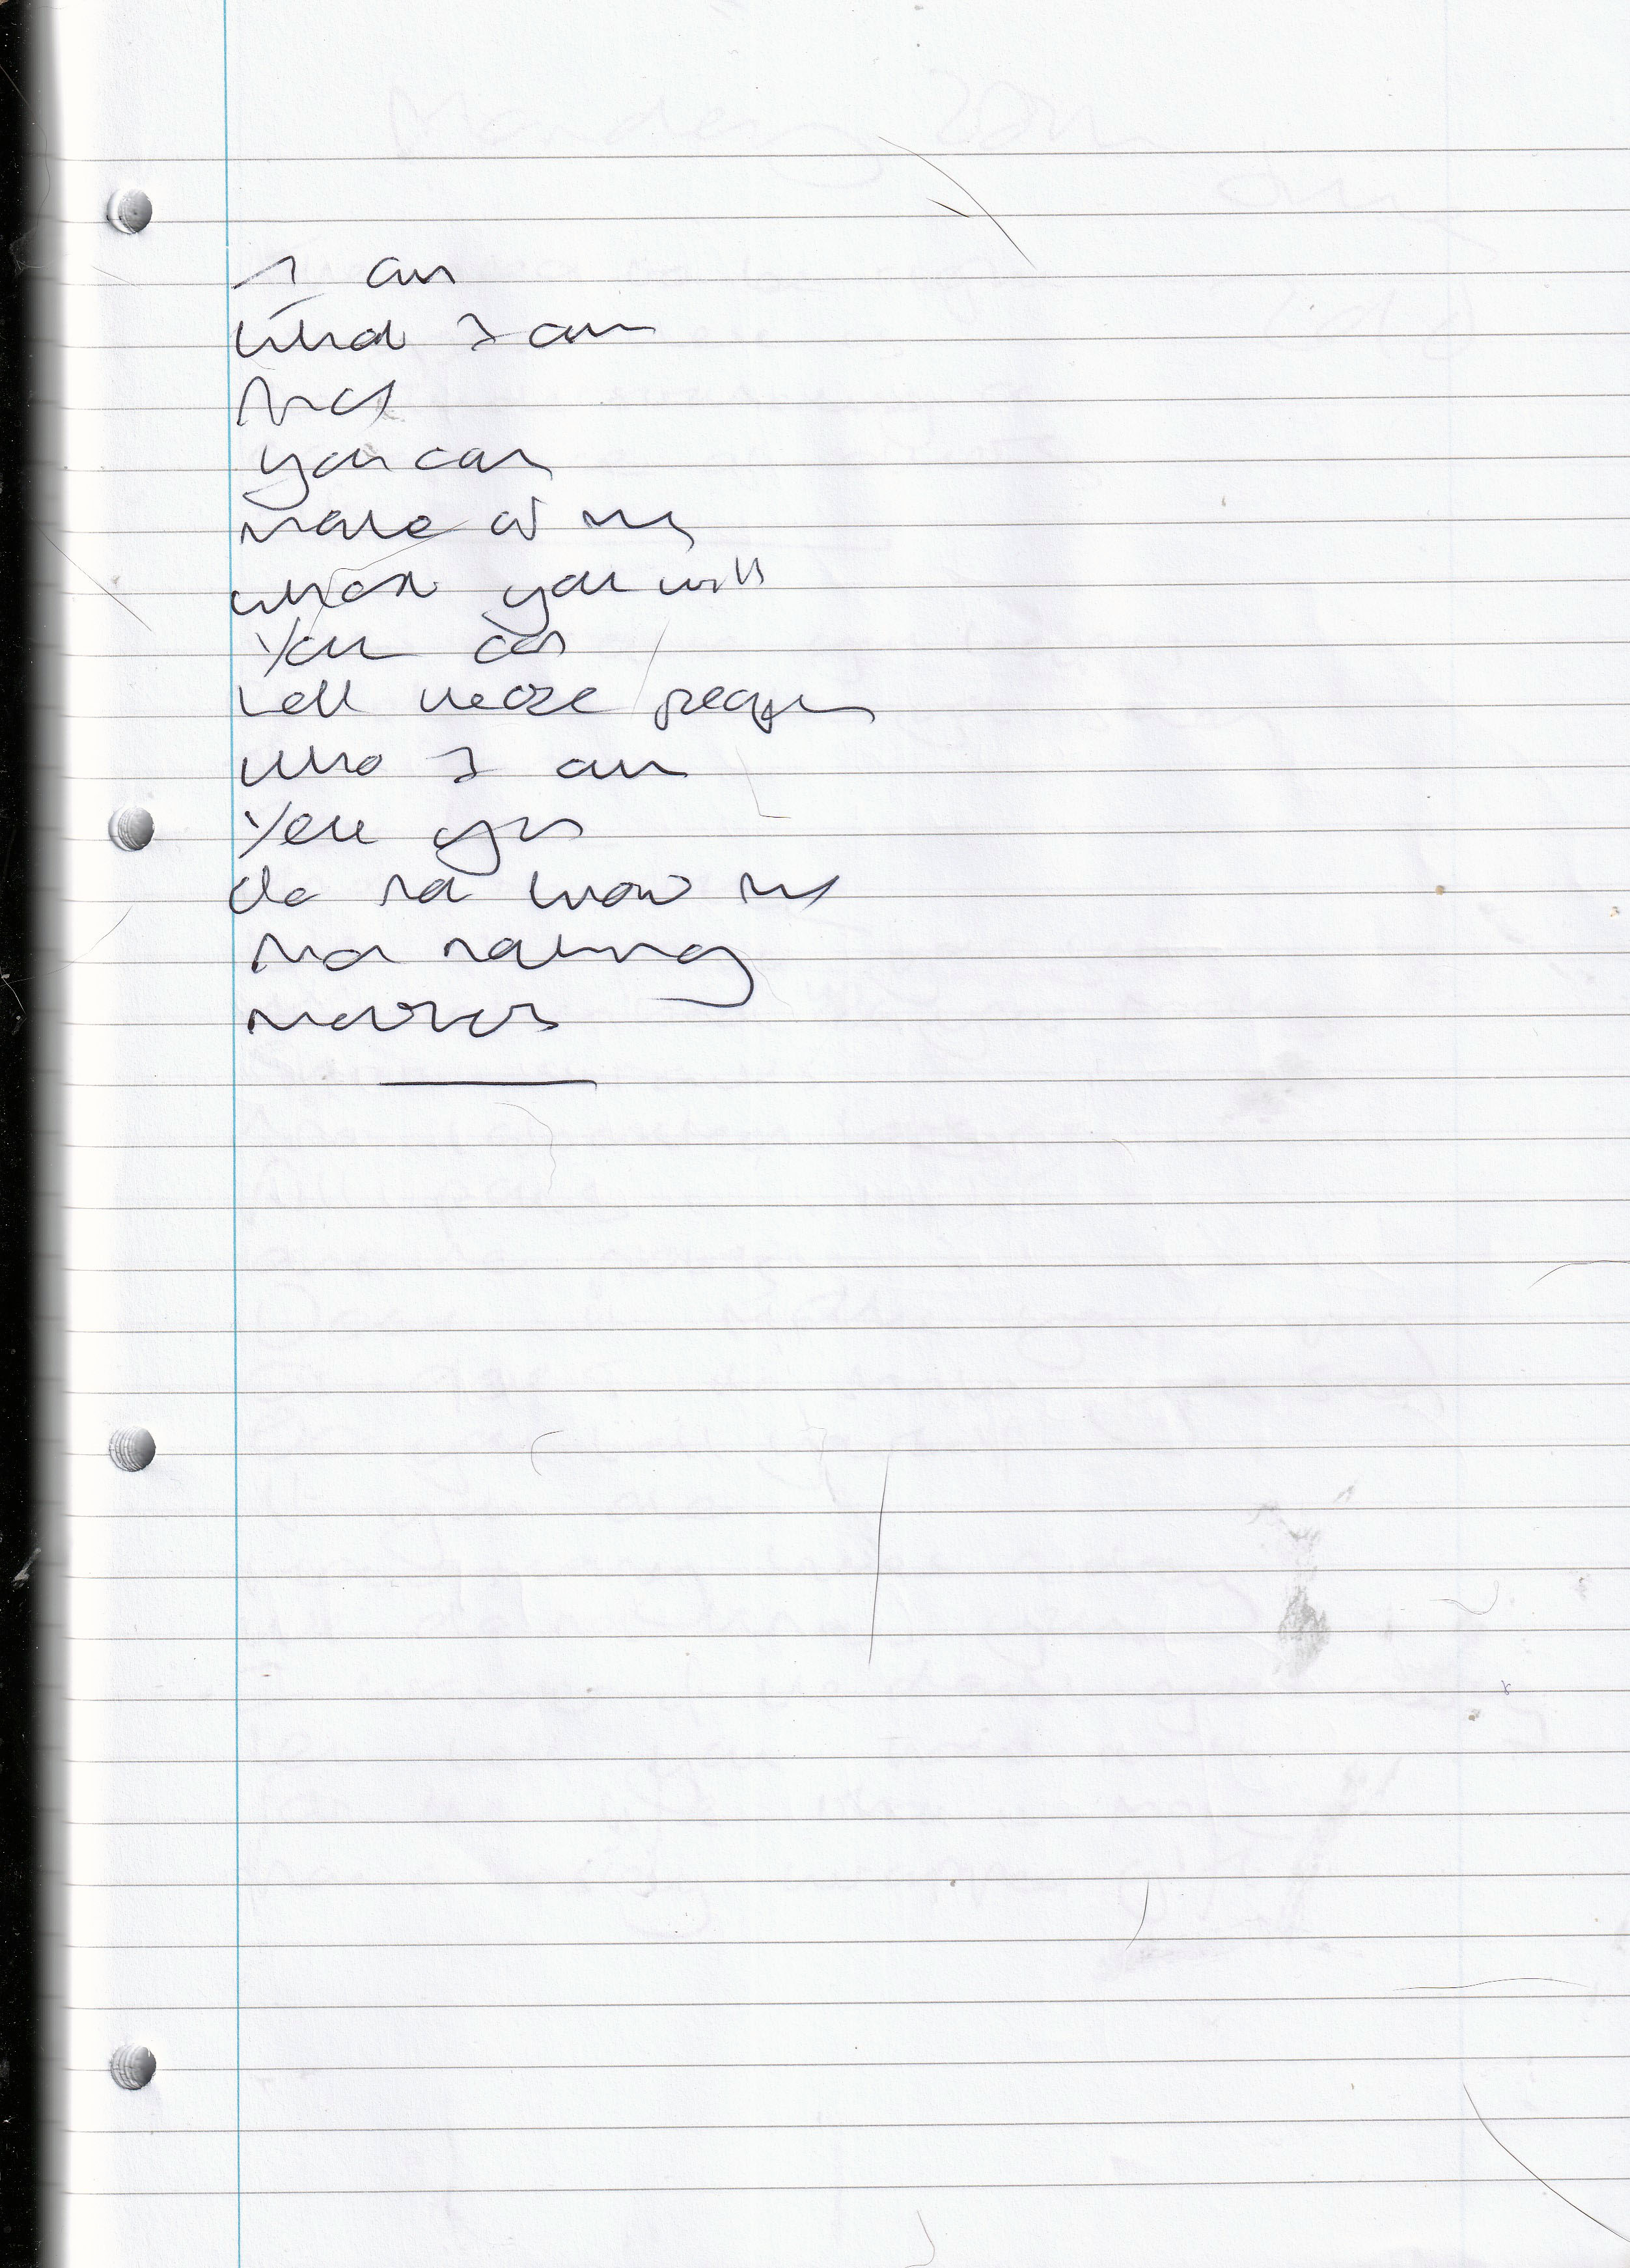 I am
what I am
And
you can
make of me
what you will
You can
tell these people
who I am
Yet you
do not know me
Nor nothing
matters